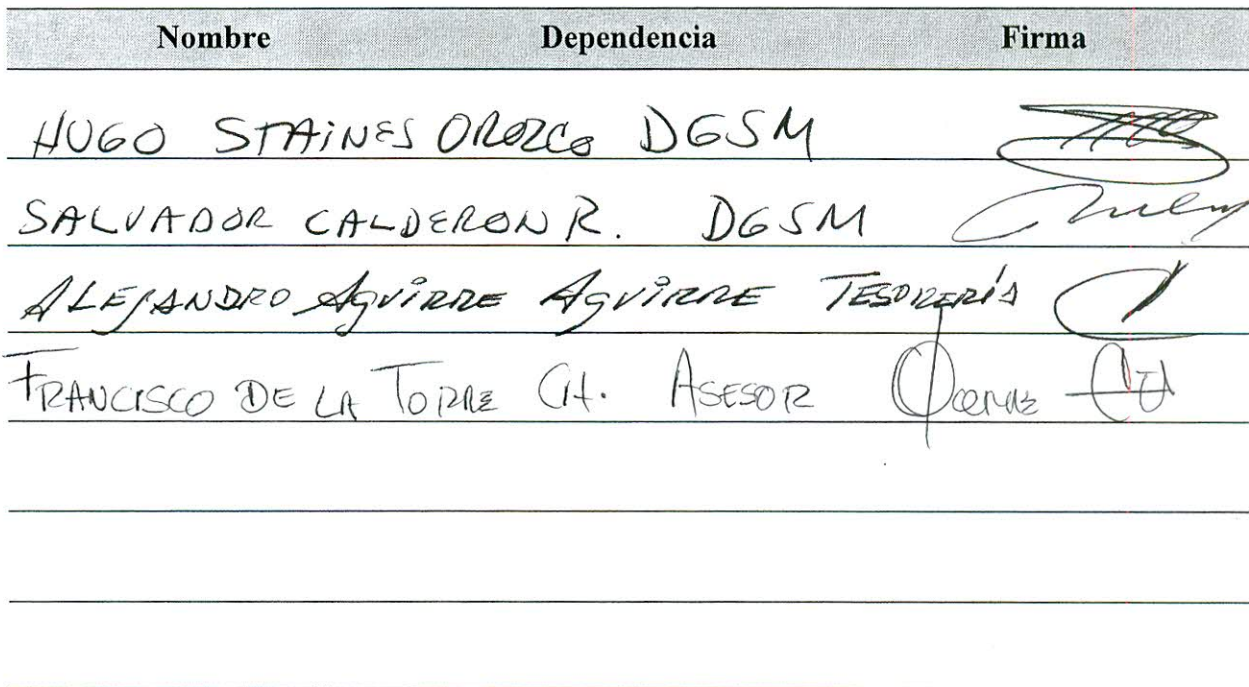 Nombre Dependencia Firma
HUGO STAINES OROZCO DGSM
SALVADOR CALDERON R. DGSM
ALEJANDRO AGUIRRE AGUIRRE TESORERÍA
FRANCISCO DE LA TORRE CH. ASESOR